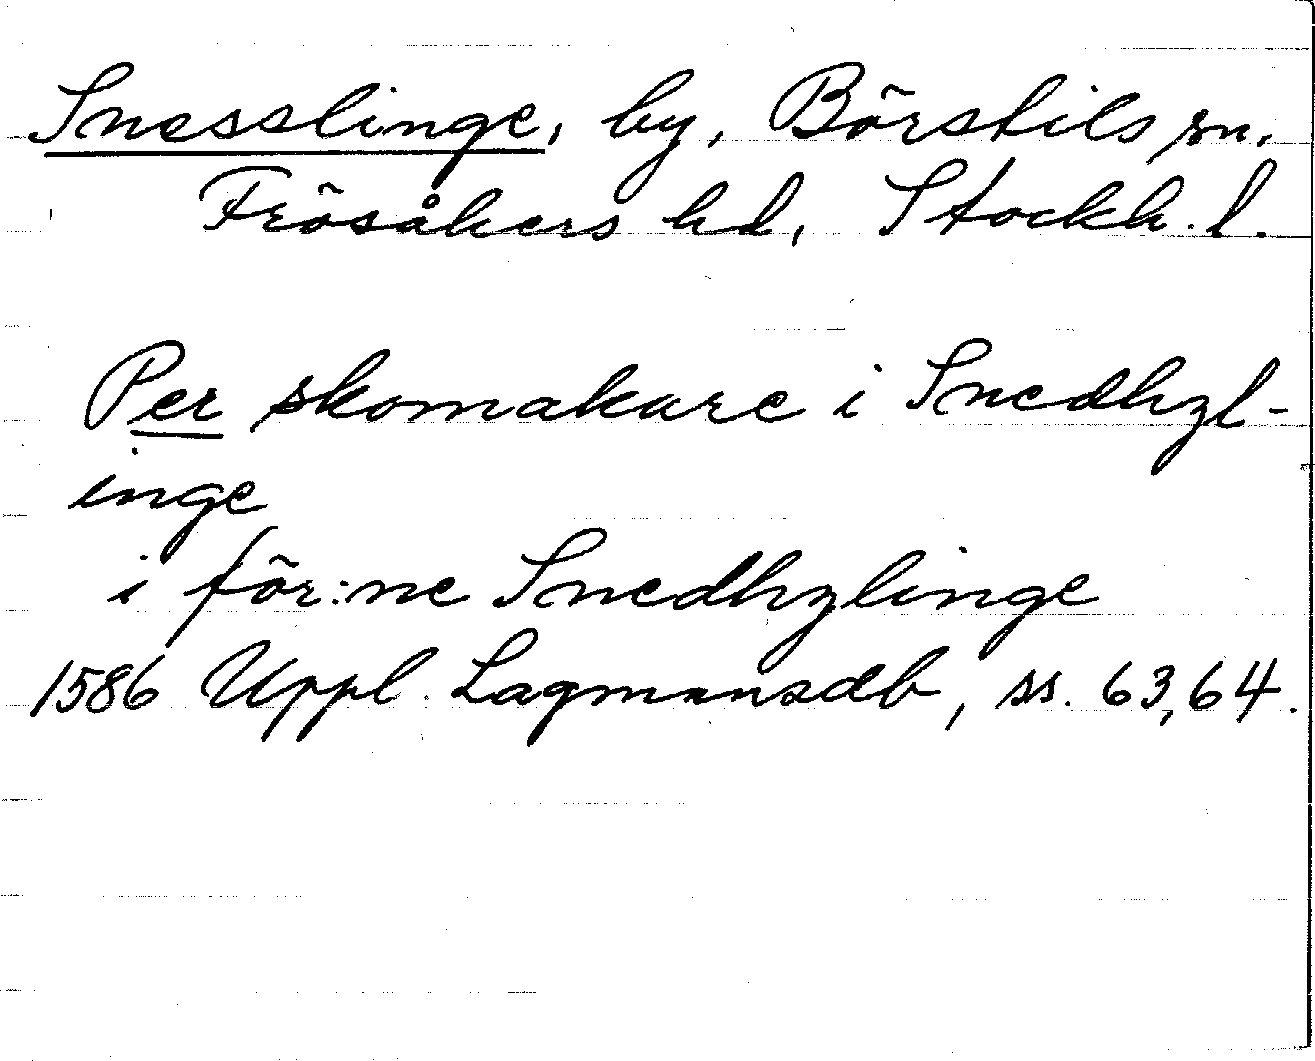 Snesslinge, by, Börstils sn.
Frösåkers hd, Stockh. l.
Per skomakare i Snedhzl-
inge
i för:ne Snedhzlinge
1586 Uppl. Lagmansdb, ss. 63,64.